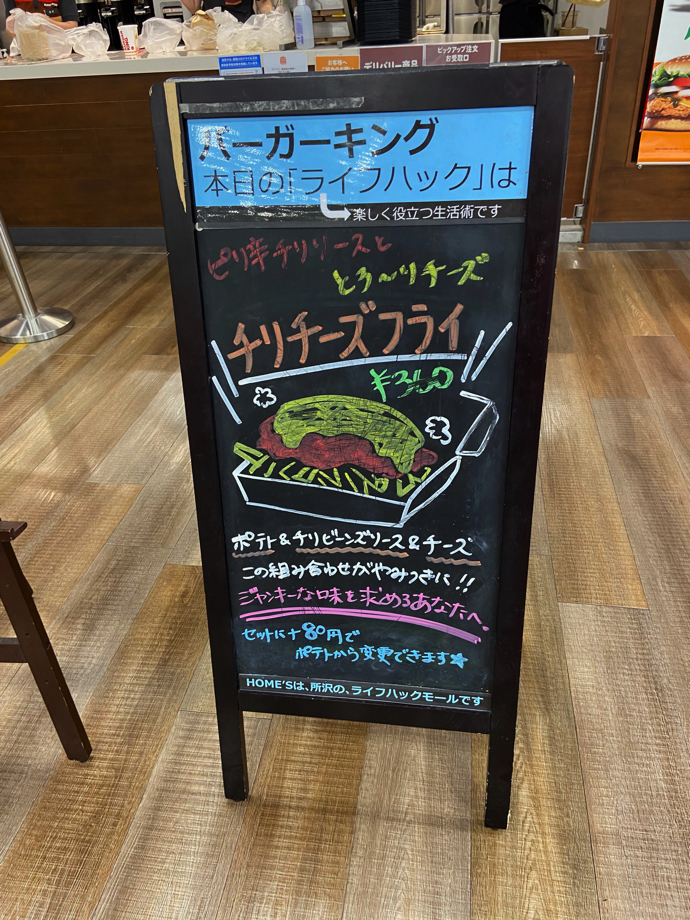 デリバリー商品
ピックアップ注文
お受取口
バーガーキング
本日の「ライフハック」は
楽しく役立つ生活術です
ピリ辛チリソースと
とろ〜りチーズ
チリチーズフライ
¥360
ポテト&チリビーンズソース&チーズ
この組み合わせがやみつきに!!
ジャンキーな味を求めるあなたへ!
セットに+80円で
ポテトから変更できます★
HOME'Sは、所沢の、ライフハックモールです